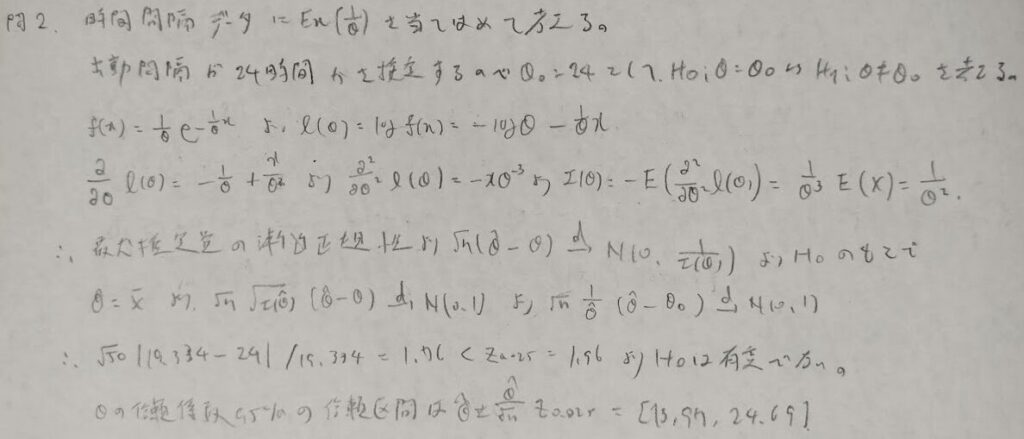 問2. 時間間隔データに Ex(1/θ) を当てはめて考える。
出動間隔が24時間かを推定するので θ₀=24 として、H₀: θ=θ₀ vs H₁: θ≠θ₀ を考える。
f(x) = 1/θ e^{-1/θ x} より、l(θ) = log f(x) = -log θ - 1/θ x.
∂/∂θ l(θ) = -1/θ + x/θ² より ∂²/∂θ² l(θ) = -xθ⁻³ より I(θ) = -E(∂²/∂θ² l(θ)) = 1/θ³ E(X) = 1/θ².
∴ 最尤推定量の漸近正規性より √n(θ̂-θ) →d N(0, 1/I(θ)) より、H₀のもとで
θ̂ = x̄ より、√n √I(θ̂) (θ̂-θ) →d N(0,1) より √n 1/θ̂ (θ̂-θ₀) →d N(0,1)
∴ √50 |19.334-24| / 19.334 = 1.76 < Z0.025 = 1.96 より H₀は有意でない。
θの信頼係数95%の信頼区間は θ̂ ± θ̂/√n Z0.025 = [13.97, 24.69]